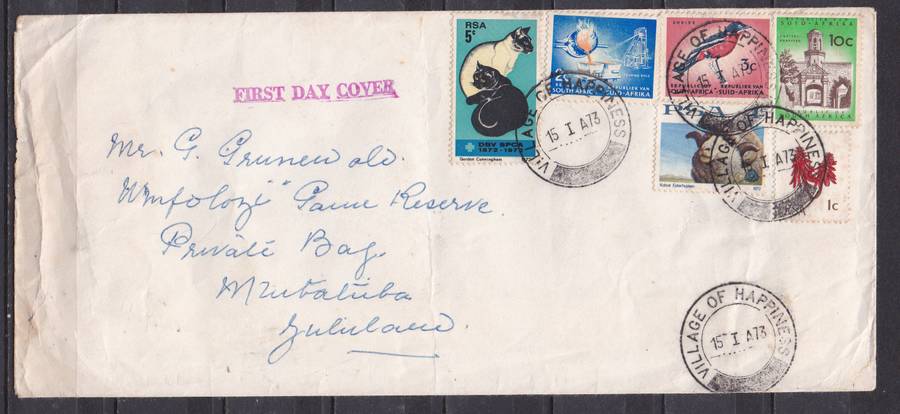 FIRST DAY COVER
Mr. G. Grunewald.
Umfolozi Game Reserve.
Private Bag.
Mtubatuba
Zululand.
RSA
5c
DBV SPCA
1872-1972
Gordon Cunningham
2½
SOUTH AFRICA SUID-AFRIKA
3c
REPUBLIC OF REPUBLIEK VAN
SOUTH AFRICA SUID-AFRIKA
SUID-AFRIKA
10c
SOUTH AFRICA
RSA
1972
1c
VILLAGE OF HAPPINESS
15 I A73
VILLAGE OF HAPPINESS
15 I A73
VILLAGE OF HAPPINESS
I A73
VILLAGE OF HAPPINESS
15 I A73